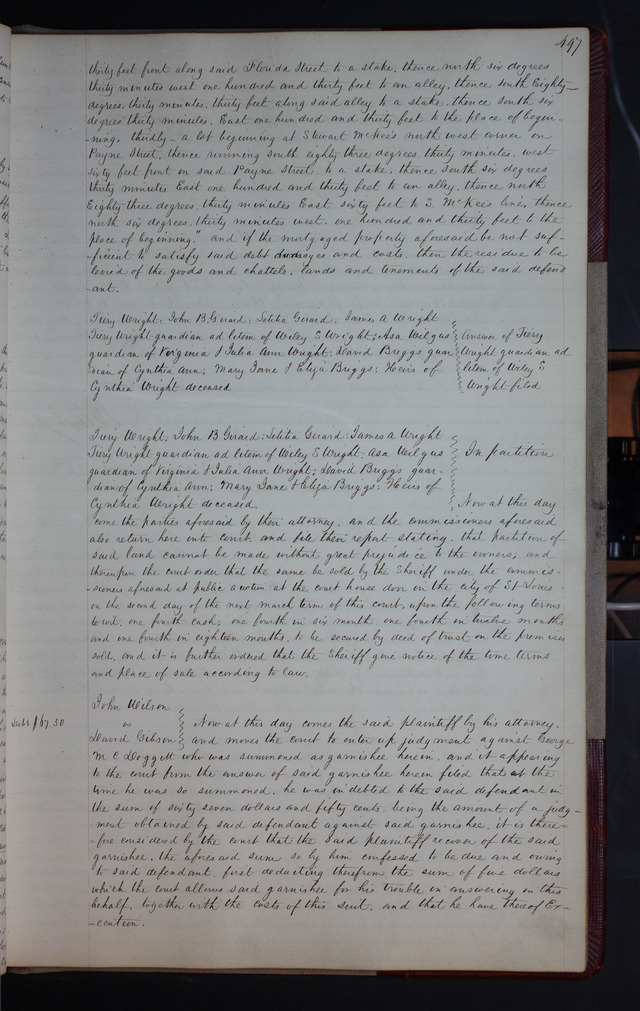 497
thirty feet front along said Florida Street to a stake, thence north six degrees
thirty minutes west one hundred and thirty feet to an alley, thence South Eighty
degrees, thirty minutes, thirty feet along said alley to a stake, thence South six
degrees thirty minutes, East one hundred and thirty feet to the place of begin-
-ning, thirdly - a lot beginning at Stewart McKee's north west corner on
Payne Street, thence running South eighty three degrees thirty minutes, west
sixty feet front on said Payne Street to a stake, thence South six degrees
thirty minutes East one hundred and thirty feet to an alley, thence north
Eighty three degrees, thirty minutes East sixty feet to S McKee's line, thence
north six degrees, thirty minutes west, one hundred and thirty feet to the
place of beginning." and if the mortgaged property aforesaid be not suf-
-ficient to satisfy said debt damages and costs, then the residue to be
levied of the goods and chattels, lands and tenements of the said defend
-ant.
Fiery Wright, John B. Girard, Letitia Girard, James A Wright
Fiery Wright guardian ad litem of Wiley S Wright; Asa Wilgus
guardian of Virginia & Julia Ann Wright; David Briggs guar
dian of Cynthia Ann; Mary Jane & Eliza Briggs: Heirs of
Cynthia Wright deceased
Answer of Fiery
Wright guardian ad
litem of Wiley S
Wright filed
Fiery Wright; John B Girard; Letitia Girard; James A Wright
Fiery Wright guardian ad litem of Wiley S Wright; Asa Wilgus
guardian of Virginia & Julia Ann Wright; David Briggs guar-
dian of Cynthia Ann; Mary Jane & Eliza Briggs: Heirs of
Cynthia Wright deceased
In partition
Now at this day
come the parties aforesaid by their attorney, and the commissioners aforesaid
also return here into court, and file their report stating, that partition of
said land cannot be made without great prejudice to the owners; and
thereupon the court order that the same be sold by the Sheriff under the commis-
-sioners aforesaid at public auction at the court house door in the city of St Louis
on the second day of the next march term of this court, upon the following terms
to wit, one fourth cash, one fourth in six month, one fourth in twelve months
and one fourth in eighteen months, to be secured by deed of trust on the premises
sold, and it is further ordered that the Sheriff give notice of the time terms
and place of sale according to law.
John Wilson
vs
David Gibson
Debt $67.50
Now at this day comes the said plaintiff by his attorney,
and moves the court to enter up judgment against George
M C Doggett who was summoned as garnishee herein, and it appearing
to the court from the answer of said garnishee herein filed that at the
time he was so summoned, he was indebted to the said defendant in
the sum of sixty seven dollars and fifty cents, being the amount of a judg-
-ment obtained by said defendant against said garnishee, it is there-
-fore considered by the court that the said plaintiff recover of the said
garnishee, the aforesaid sum so by him confessed to be due and owing
to said defendant, first deducting therefrom the sum of five dollars
which the court allows said garnishee for his trouble in answering in this
behalf, together with the costs of this suit, and that he have thereof Ex-
-ecution.